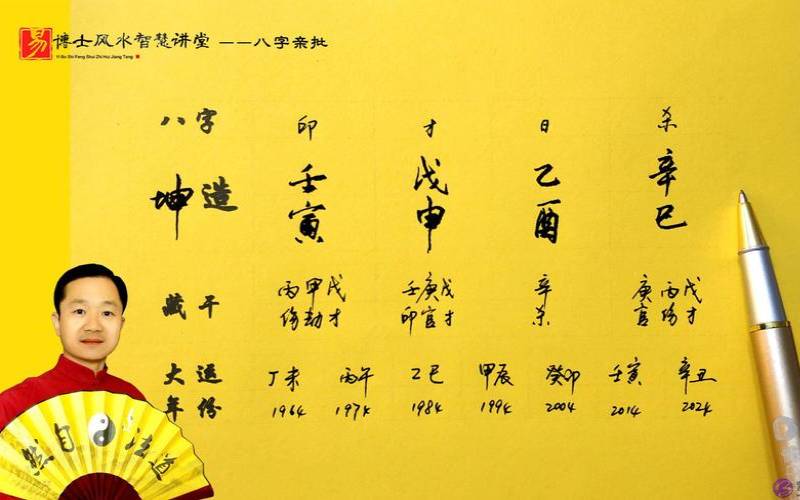 易 博士风水智慧讲堂 ——八字亲批
Yi Bo Shi Feng Shui Zhi Hui Jiang Tang
八字 印 才 日 杀
坤造 壬寅 戊申 乙酉 辛巳
藏干 丙伤 甲劫 戊才 壬印 庚官 戊才 辛杀 庚官 丙伤 戊才
大运 丁未 丙午 乙巳 甲辰 癸卯 壬寅 辛丑
年份 1964 1974 1984 1994 2004 2014 2024
道法自然